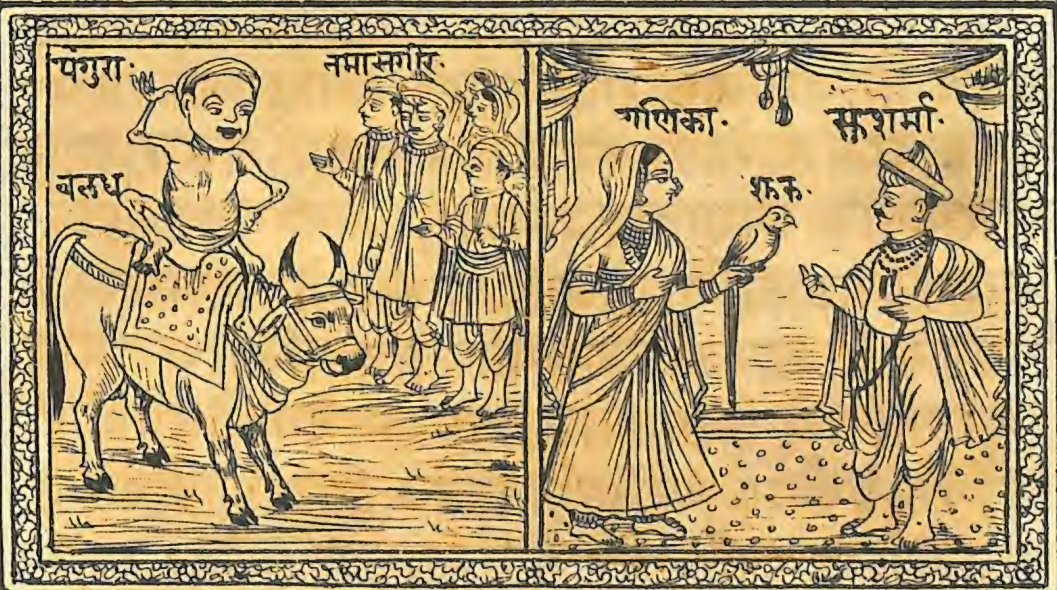 पंगुरा·
तमासगीर·
बलध
गणिका·
सुशर्मा·
शुक·